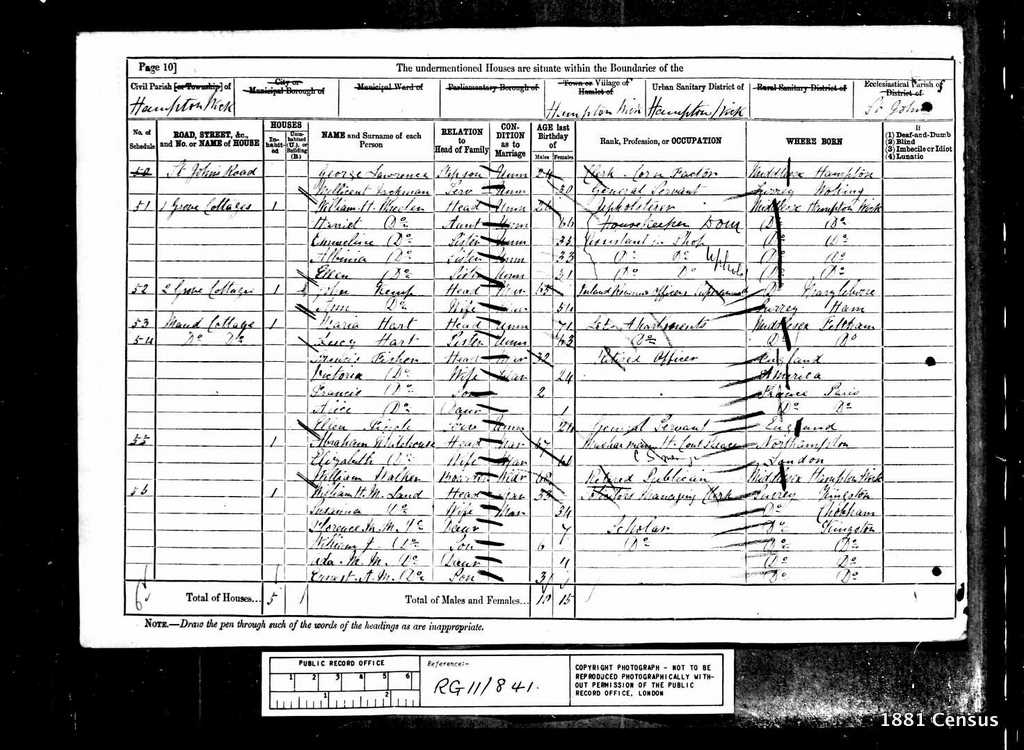 Page 10]
The undermentioned Houses are situate within the Boundaries of the
Civil Parish [or Township] of
City or Municipal Borough of
Municipal Ward of
Parliamentary Borough of
Town or Village of Hamlet of
Urban Sanitary District of
Rural Sanitary District of
Ecclesiastical Parish of District of
Hampton Wick
Hampton Wick
Hampton Wick
St Johns
No. of Schedule
ROAD, STREET, &c., and No. or NAME of HOUSE
HOUSES
Inhabited
Uninhabited (U.), or Building (B.)
NAME and Surname of each Person
RELATION to Head of Family
CONDITION as to Marriage
AGE last Birthday of
Males
Females
Rank, Profession, or OCCUPATION
WHERE BORN
If
(1) Deaf-and-Dumb
(2) Blind
(3) Imbecile or Idiot
(4) Lunatic
50 St Johns Road George Lawrence Stepson Unm 24 Clerk Corn Factor Middlesex Hampton
Millicent Serv Unm 30 General Servant Surrey Woking
51 1 Grove Cottages 1 William H. Head Unm Upholsterer Middlesex Hampton Wick
Harriet Do Aunt Unm 64 Housekeeper Dom Do Do
Emmeline Do Sister Unm 35 Assistant in Shop Do Do
Albinia Do Sister Unm 33 Do Do Do Do
Ellen Do Sister Unm 31 Do Do Do Do
52 2 Grove Cottages 1 John Kemp Head Mar 63 Inland Revenue Officer Do Marylebone
Ann Do Wife Mar Surrey Ham
53 Maud Cottage 1 Maria Hart Head Unm 71 Let Apartments Middlesex Feltham
54 Do Do Lucy Hart Sister Unm 63 Do Do Do
Francis Fisher Head Mar 32 Retired Officer England
Victoria Do Wife Mar 24 America
Francis Do Son 2 France Paris
Alice Do Daur 1 Do Do
Ellen Serv Unm 24 General Servant England
55 1 Abraham Whitehouse Head Mar 67 Northampton
Elizabeth Do Wife Mar 61 London
William Boarder Widr 68 Retired Publican Middlesex Hampton Wick
56 1 William H. M. Land Head Mar 35 Solicitors Managing Clerk Surrey Kingston
Susanna Do Wife Mar 34 Do Chobham
Florence M. M. Do Daur 7 Scholar Do Kingston
William J Do Son 6 Do Do Do
Ada M. M. Do Daur 4 Do Do
Ernest A. M. Do Son 3 Do Do
Total of Houses... 5 1
Total of Males and Females... 10 15
NOTE.—Draw the pen through such of the words of the headings as are inappropriate.
PUBLIC RECORD OFFICE
1 2 3 4 5 6
1 2
Reference:-
RG 11/841.
COPYRIGHT PHOTOGRAPH - NOT TO BE
REPRODUCED PHOTOGRAPHICALLY WITH-
OUT PERMISSION OF THE PUBLIC
RECORD OFFICE, LONDON
1881 Census